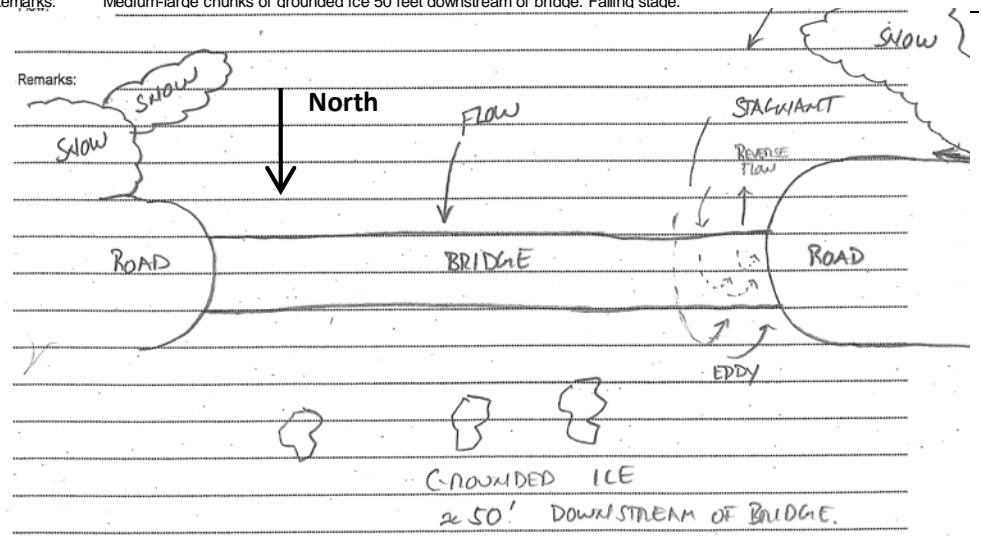 Remarks: Medium-large chunks of grounded ice 50 feet downstream of bridge. Falling stage.
SNOW
Remarks:
SNOW
North
FLOW
STAGNANT
SNOW
REVERSE
FLOW
ROAD
BRIDGE
ROAD
EDDY
GROUNDED ICE
≈ 50' DOWNSTREAM OF BRIDGE.